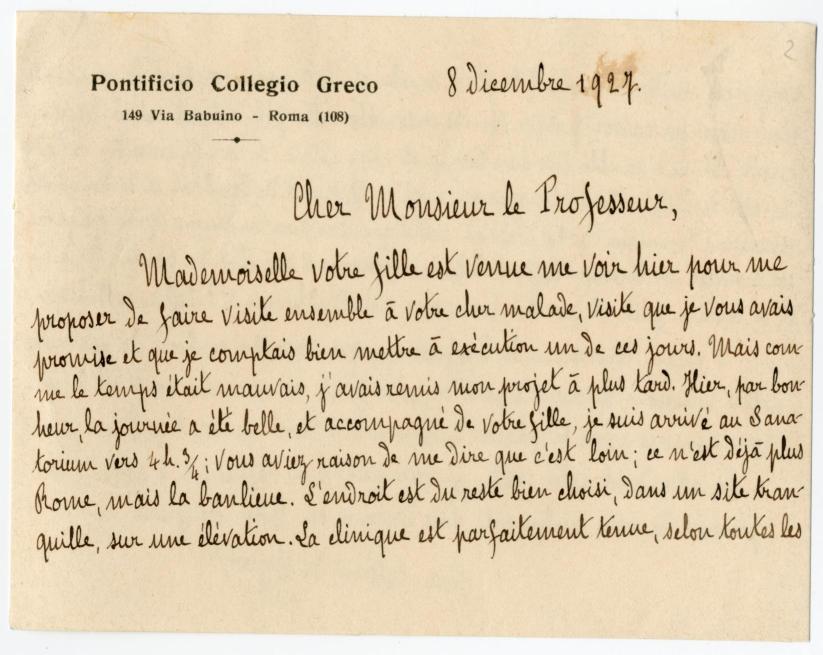 2
Pontificio Collegio Greco
149 Via Babuino - Roma (108)
8 dicembre 1927.
Cher Monsieur le Professeur,
Mademoiselle votre fille est venue me voir hier pour me
proposer de faire visite ensemble à votre cher malade, visite que je vous avais
promise et que je comptais bien mettre à exécution un de ces jours. Mais com-
me le temps était mauvais, j'avais remis mon projet à plus tard. Hier, par bon-
heur, la journée a été belle, et accompagné de votre fille, je suis arrivé au Sana-
torium vers 4 h. 3/4; vous aviez raison de me dire que c'est loin; ce n'est déjà plus
Rome, mais la banlieue. L'endroit est du reste bien choisi, dans un site tran-
quille, sur une élévation. La clinique est parfaitement tenue, selon toutes les